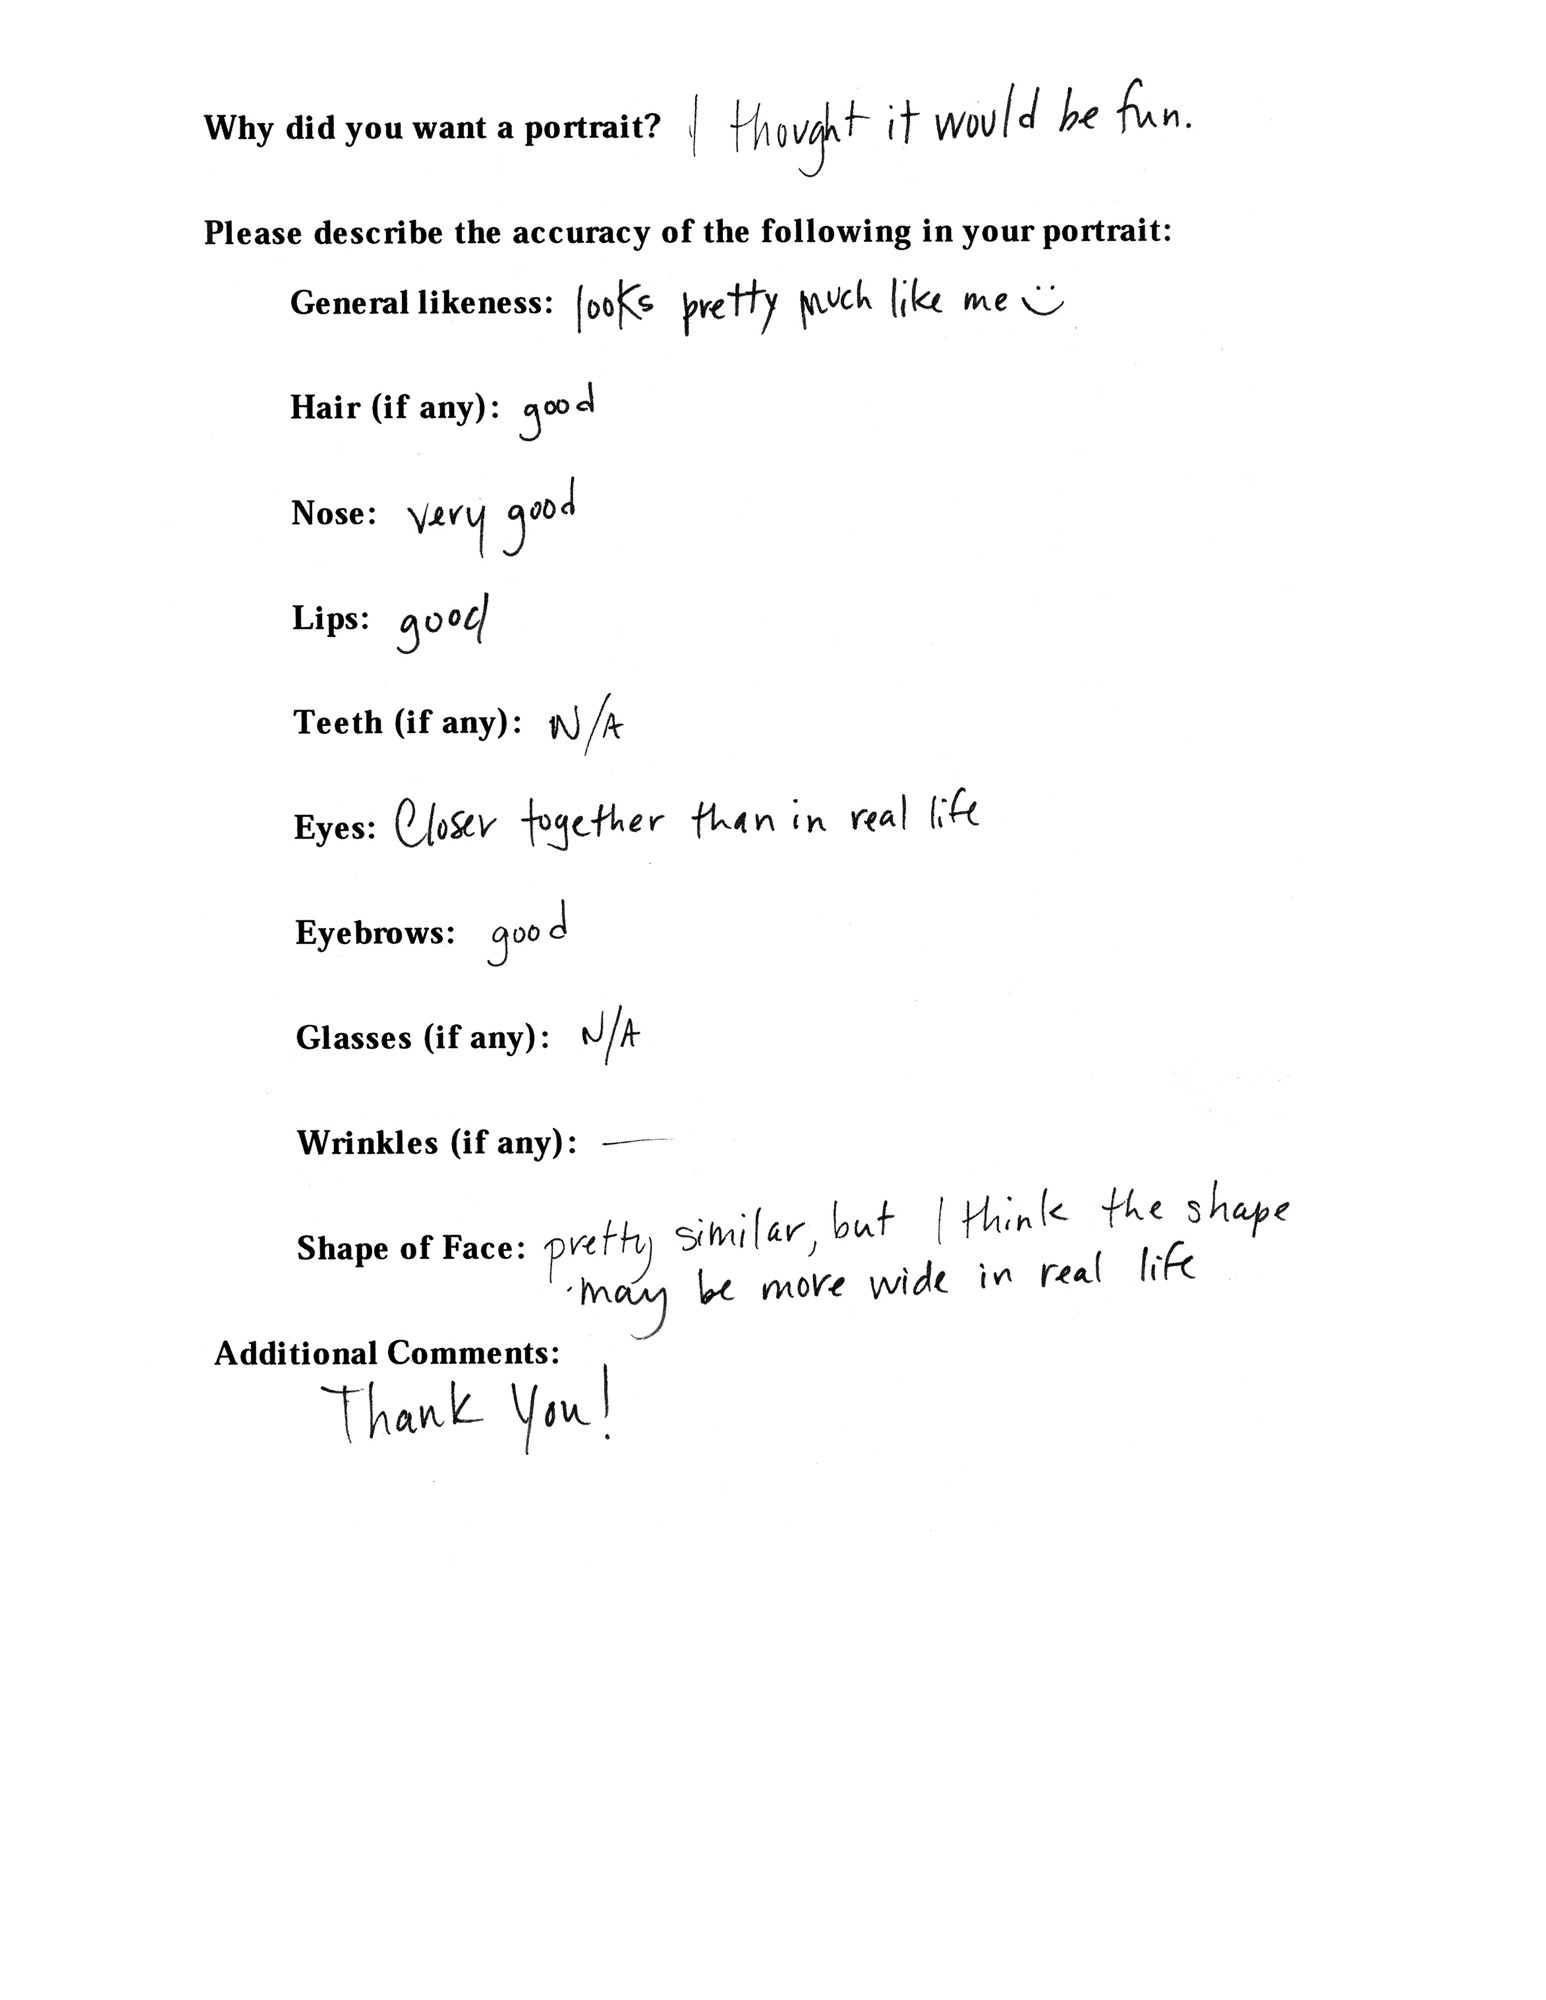 Why did you want a portrait? I thought it would be fun.
Please describe the accuracy of the following in your portrait:
General likeness: looks pretty much like me
Hair (if any): good
Nose: very good
Lips: good
Teeth (if any): N/A
Eyes: Closer together than in real life
Eyebrows: good
Glasses (if any): N/A
Wrinkles (if any): —
Shape of Face: pretty similar, but I think the shape
may be more wide in real life
Additional Comments:
Thank You!